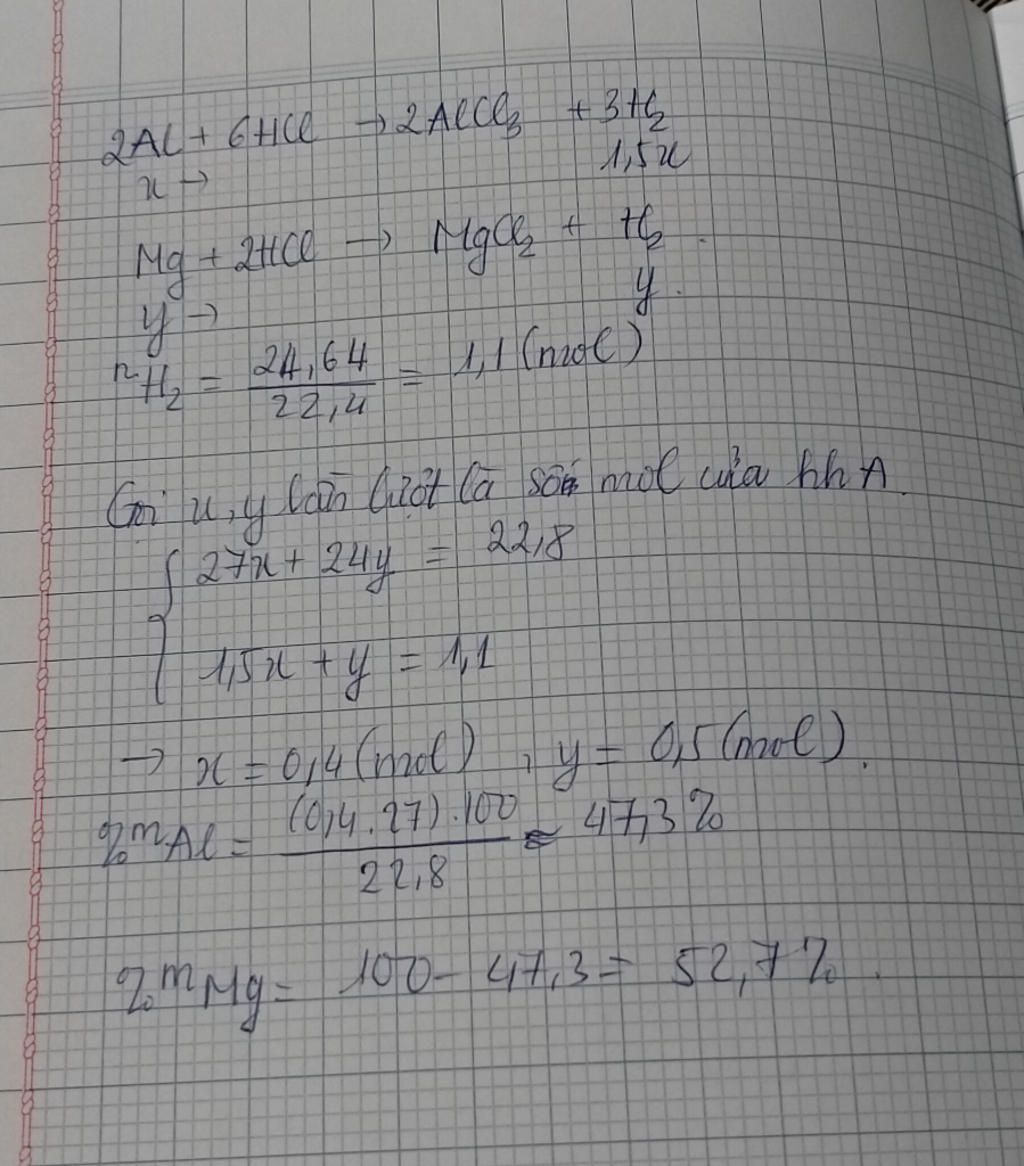 2Al + 6HCl → 2AlCl₃ + 3H₂
x → 1,5x
Mg + 2HCl → MgCl₂ + H₂.
y → y.
nH₂ = 24,64 / 22,4 = 1,1 (mol)
Gọi x, y lần lượt là số mol của hh A.
{ 27x + 24y = 22,8
1,5x + y = 1,1
→ x = 0,4 (mol), y = 0,5 (mol).
%mAl = (0,4.27).100 / 22,8 ≈ 47,3%
%mMg = 100 - 47,3 = 52,7%.